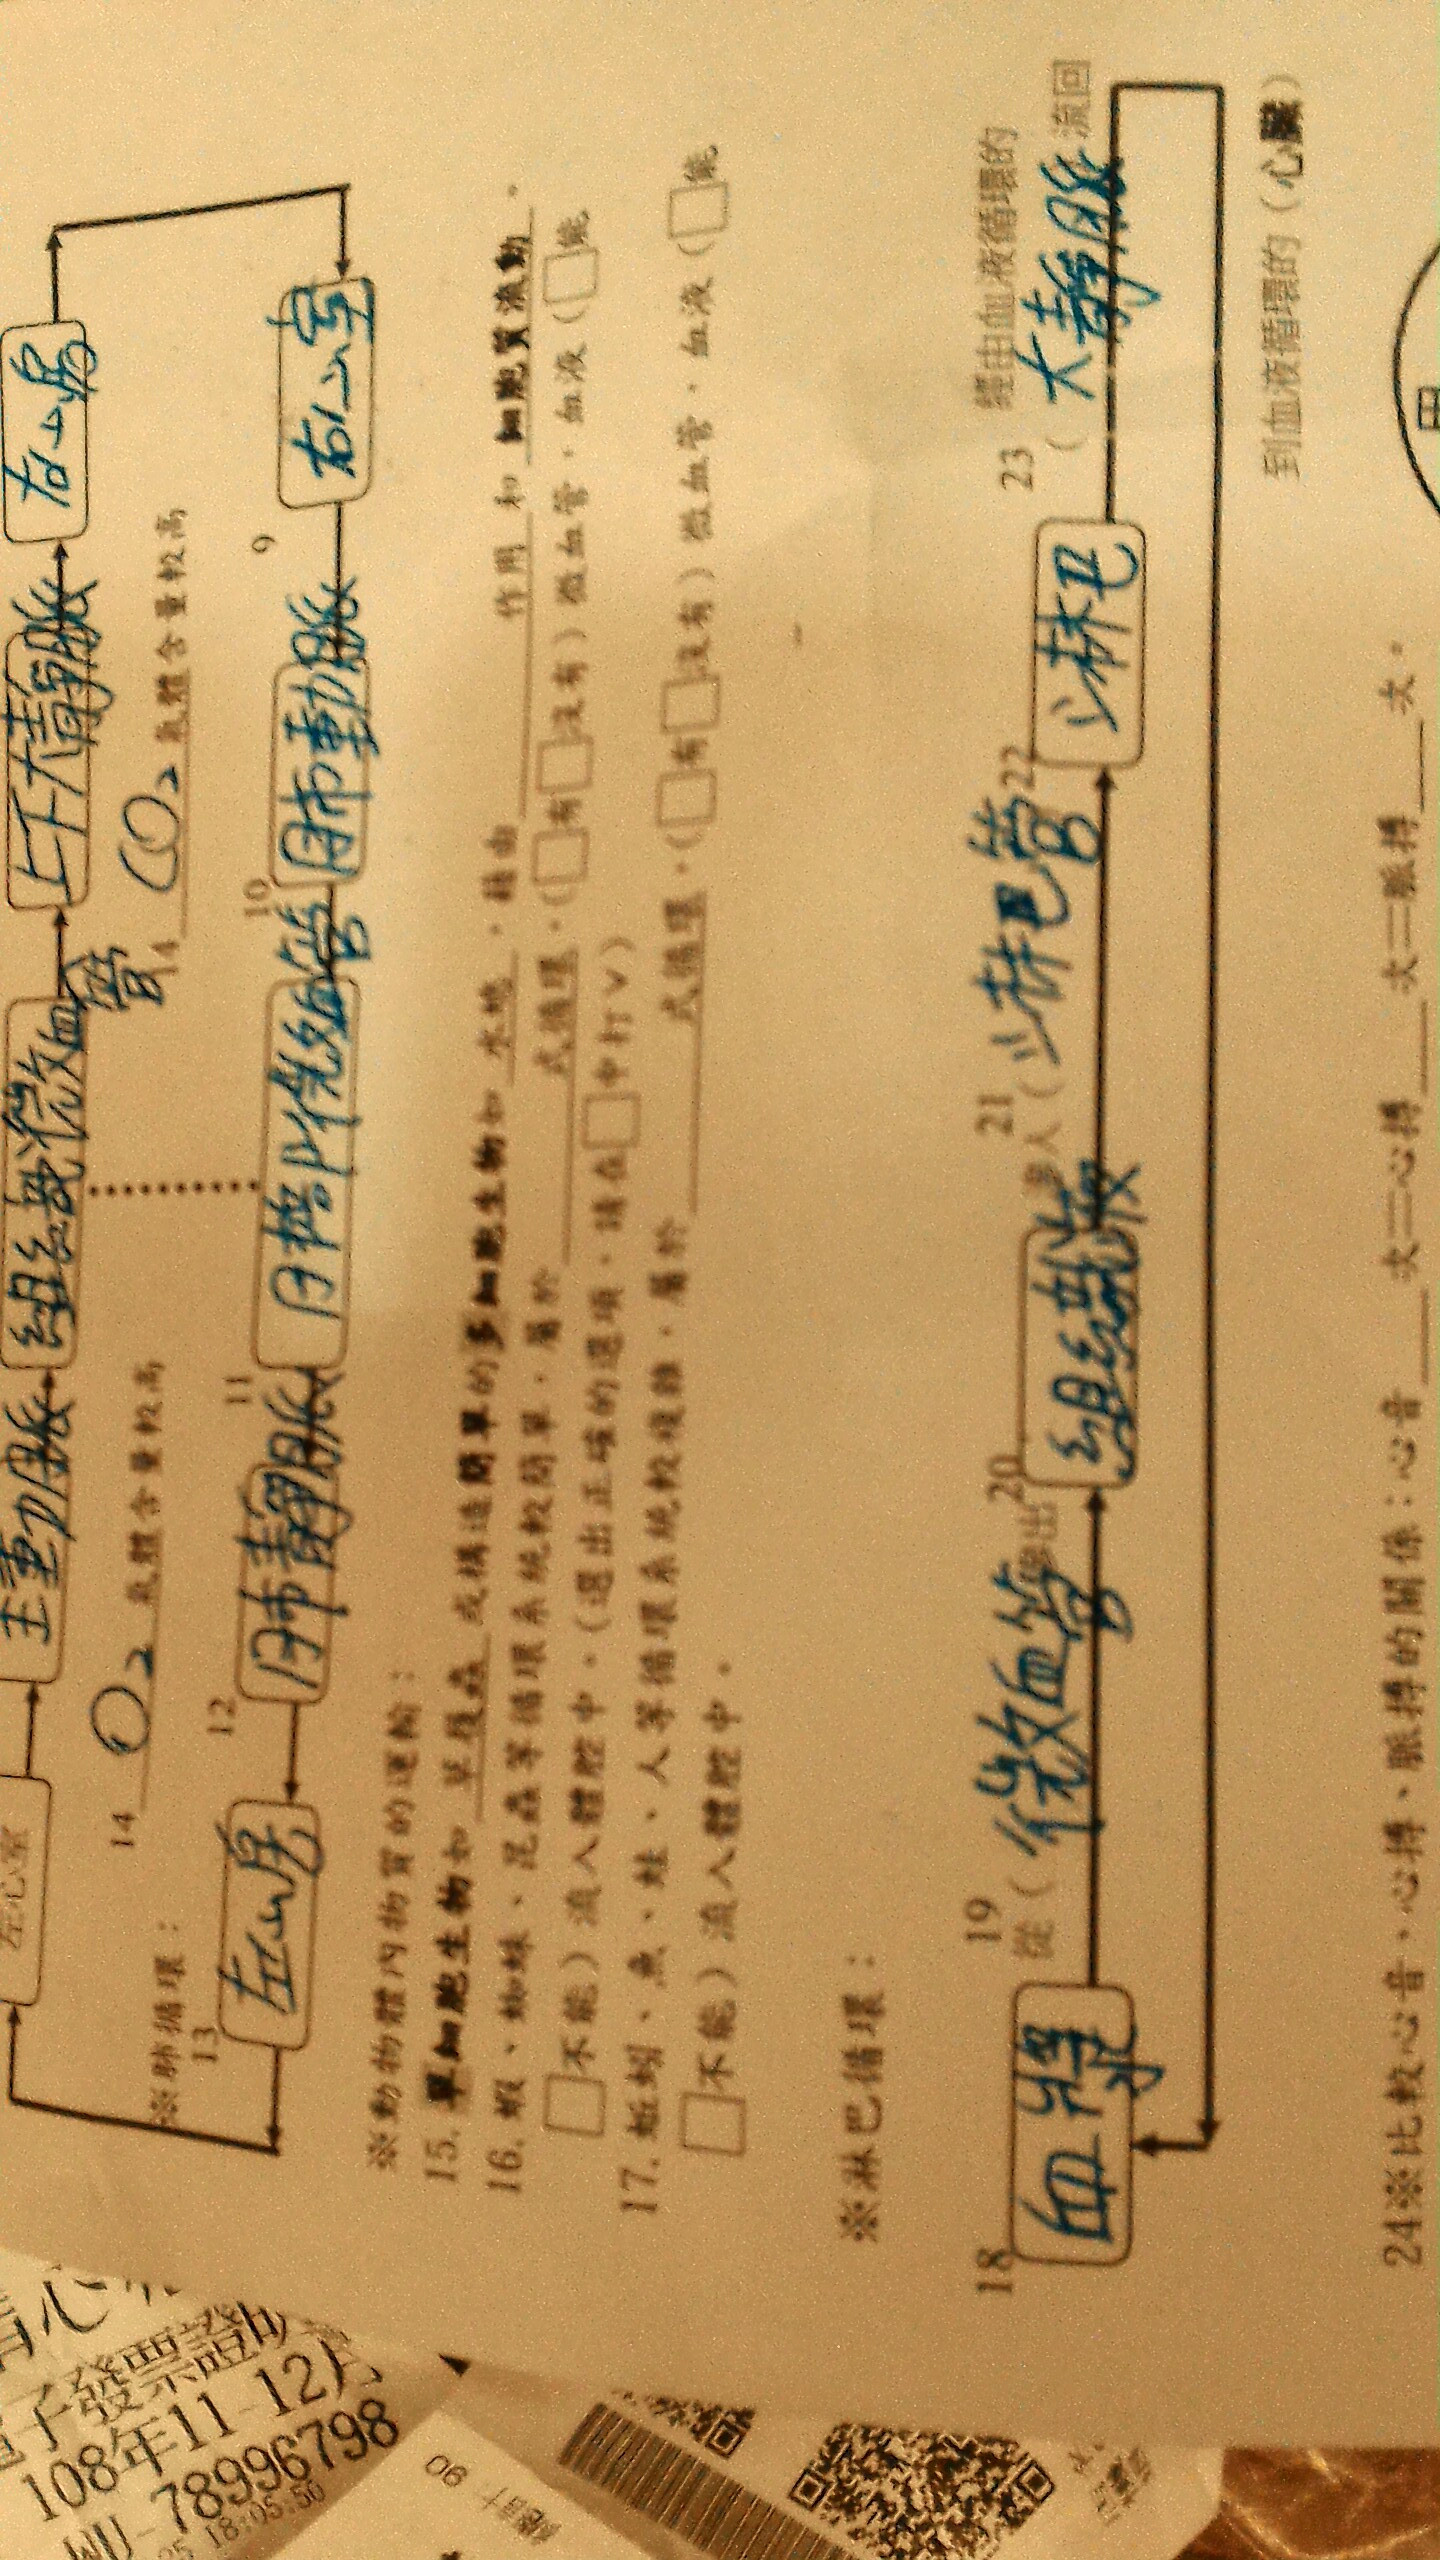 左心室
主動脈
組織微血管
上下大靜脈
右心房
14 O2 氣體含量較高
14 CO2 氣體含量較高
※肺循環：
13 左心房
12 肺靜脈
11 肺泡微血管
10 肺動脈
9 右心室
※動物體內物質的運輸：
15. 單細胞生物如 草履蟲 或構造簡單的多細胞生物如 水螅 ，藉由 作用 和 細胞質流動 。
16. 蝦、蜘蛛、昆蟲等循環系統較簡單，屬於 式循環，(□有□沒有) 微血管，血液 (□能
□不能) 流入體腔中。(選出正確的選項，請在□中打V)
17. 蚯蚓、魚、蛙、人等循環系統較複雜，屬於 式循環，(□有□沒有) 微血管，血液 (□能
□不能) 流入體腔中。
※淋巴循環：
18 血漿
19 從 (微血管 滲出
20 組織液
21 滲入 (淋巴管
22 淋巴
23 經由血液循環的
(大靜脈 流回
到血液循環的 (心臟)
24※比較心音、心搏、脈搏的關係：心音 次=心搏 次=脈搏 次。
甲
電子發票證明
108年11-12月
WU-78996798
25 18:05:50
總計 90